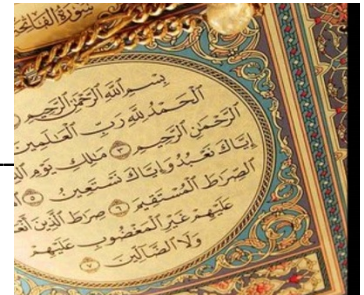 سورة الفاتحة
بِسْمِ اللَّهِ الرَّحْمَٰنِ الرَّحِيمِ
الْحَمْدُ لِلَّهِ رَبِّ الْعَالَمِينَ
الرَّحْمَٰنِ الرَّحِيمِ ۝ مَالِكِ يَوْمِ
إِيَّاكَ نَعْبُدُ وَإِيَّاكَ نَسْتَعِينُ
الصِّرَاطَ الْمُسْتَقِيمَ ۝ صِرَاطَ الَّذِينَ
عَلَيْهِمْ غَيْرِ الْمَغْضُوبِ عَلَيْهِمْ
وَلَا الضَّالِّينَ